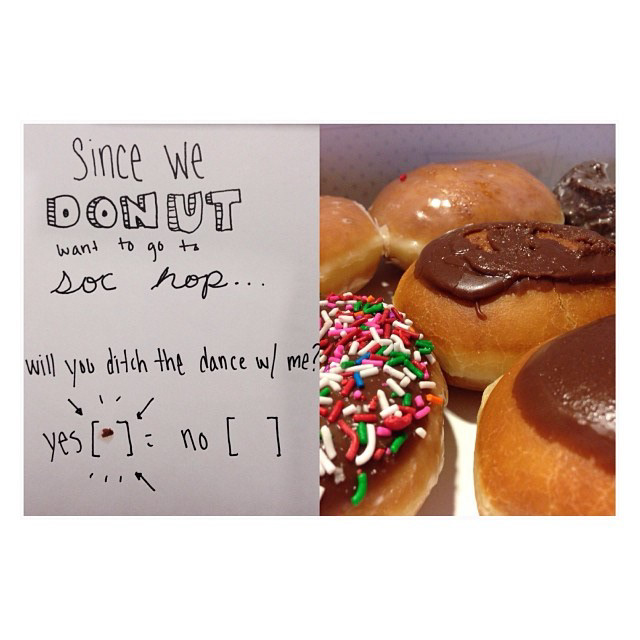 Since We
DONUT
want to go to
soc hop...
will you ditch the dance w/ me?
yes [ ] no [ ]